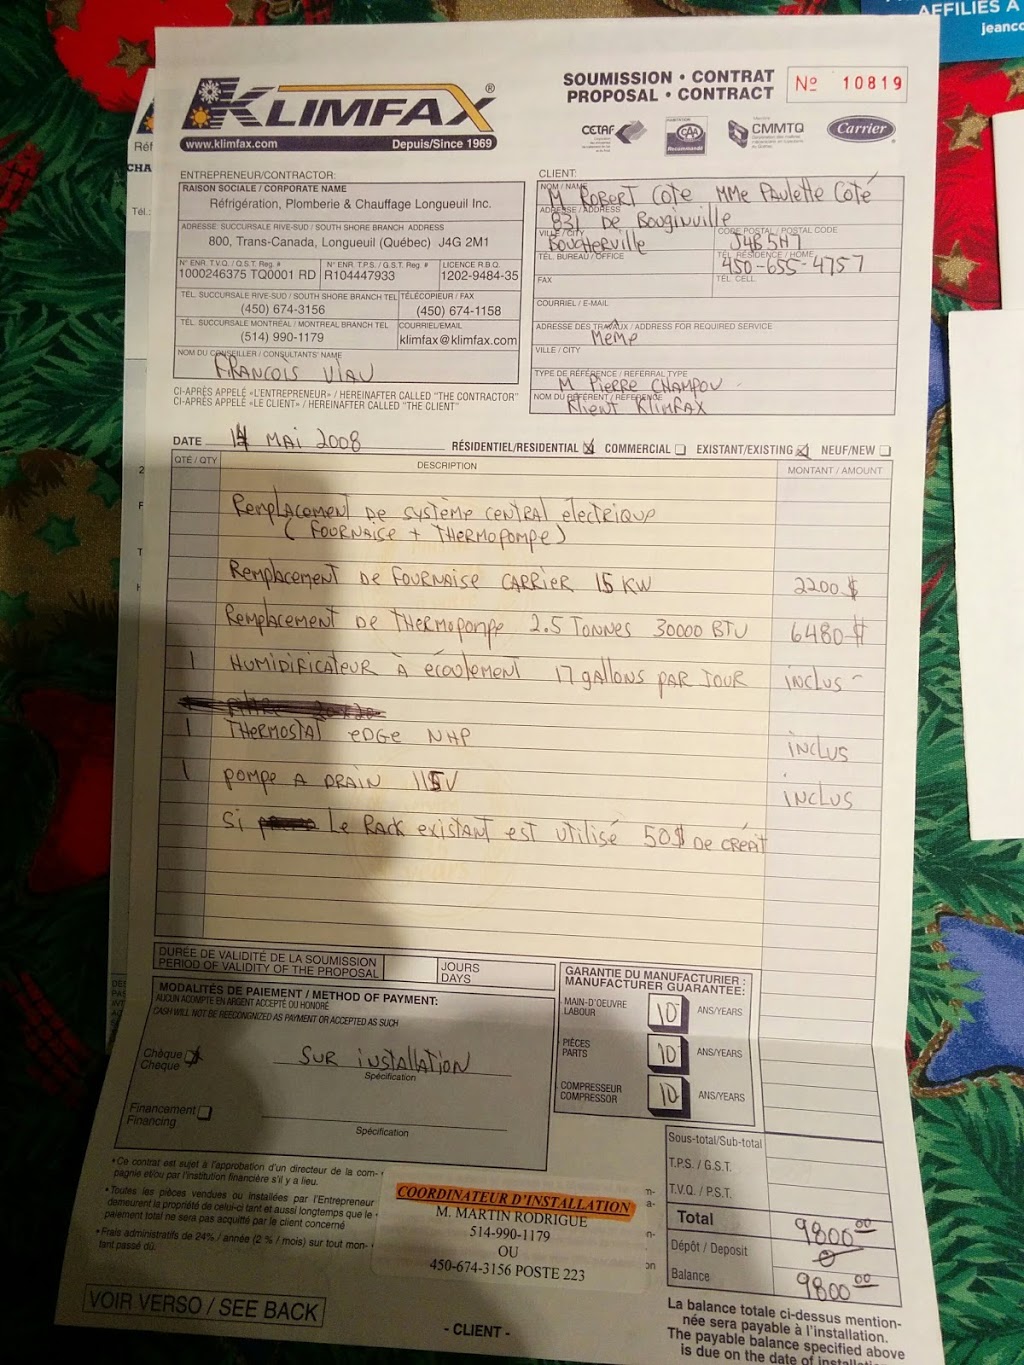 AFFILIÉS À
jeanco
KLIMFAX®
www.klimfax.com Depuis/Since 1969
SOUMISSION • CONTRAT
PROPOSAL • CONTRACT
No 10819
CETAF
CAA
Recommandé
CMMTQ
Carrier
Réf
CHA
Tél.:
ENTREPRENEUR/CONTRACTOR:
RAISON SOCIALE / CORPORATE NAME
Réfrigération, Plomberie & Chauffage Longueuil Inc.
ADRESSE: SUCCURSALE RIVE-SUD / SOUTH SHORE BRANCH ADDRESS
800, Trans-Canada, Longueuil (Québec) J4G 2M1
N° ENR. T.V.Q. / Q.S.T. Reg. # N° ENR. T.P.S. / G.S.T. Reg. # LICENCE R.B.Q.
1000246375 TQ0001 RD R104447933 1202-9484-35
TÉL. SUCCURSALE RIVE-SUD / SOUTH SHORE BRANCH TEL TÉLÉCOPIEUR / FAX
(450) 674-3156 (450) 674-1158
TÉL. SUCCURSALE MONTRÉAL / MONTREAL BRANCH TEL COURRIEL/EMAIL
(514) 990-1179 klimfax@klimfax.com
NOM DU CONSEILLER / CONSULTANTS' NAME
FRANCOIS VIAU
CI-APRÈS APPELÉ «L'ENTREPRENEUR» / HEREINAFTER CALLED "THE CONTRACTOR"
CI-APRÈS APPELÉ «LE CLIENT» / HEREINAFTER CALLED "THE CLIENT"
CLIENT:
NOM / NAME
M ROBERT COTE MME PAULETTE COTÉ
ADRESSE / ADDRESS
831 DE BOUGINVILLE
VILLE / CITY CODE POSTAL / POSTAL CODE
BOUCHERVILLE J4B 5H7
TÉL. BUREAU / OFFICE TÉL. RÉSIDENCE / HOME
450-655-4757
FAX TÉL. CELL.
COURRIEL / E-MAIL
ADRESSE DES TRAVAUX / ADDRESS FOR REQUIRED SERVICE
MEMÊ
VILLE / CITY
TYPE DE RÉFÉRENCE / REFERRAL TYPE
M PIERRE CHAMPOU
NOM DU RÉFÉRENT / REFERENCE
Klient KLIMFAX
DATE 14 MAI 2008 RÉSIDENTIEL/RESIDENTIAL COMMERCIAL EXISTANT/EXISTING NEUF/NEW
QTÉ / QTY DESCRIPTION MONTANT / AMOUNT
Remplacement de système central électrique
(FOURNAISE + THERMOPOMPE)
Remplacement de FOURNAISE CARRIER 15 KW 2200 $
Remplacement de THERMOPOMPE 2.5 TONNES 30000 BTU 6480 $
1 HUMIDIFICATEUR À écoulement 17 gallons PAR JOUR inclus
1 THERMOSTAT EDGE NHP inclus
1 pompe A DRAIN 115V inclus
Si Le RACK existant est utilisé 50$ de créait
DURÉE DE VALIDITÉ DE LA SOUMISSION
PERIOD OF VALIDITY OF THE PROPOSAL
JOURS
DAYS
MODALITÉS DE PAIEMENT / METHOD OF PAYMENT:
AUCUN ACOMPTE EN ARGENT ACCEPTÉ OU HONORÉ
CASH WILL NOT BE REECONGNIZED AS PAYMENT OR ACCEPTED AS SUCH
Chèque
Cheque
SUR installation
Spécification
Financement
Financing
Spécification
GARANTIE DU MANUFACTURIER :
MANUFACTURER GUARANTEE:
MAIN-D'OEUVRE
LABOUR
10 ANS/YEARS
PIÈCES
PARTS
10 ANS/YEARS
COMPRESSEUR
COMPRESSOR
10 ANS/YEARS
Sous-total/Sub-total
T.P.S. / G.S.T.
T.V.Q. / P.S.T.
Total 9800 00
Dépôt / Deposit 0
Balance 9800 00
• Ce contrat est sujet à l'approbation d'un directeur de la com-
pagnie et/ou par l'institution financière s'il y a lieu.
• Toutes les pièces vendues ou installées par l'Entrepreneur
demeurent la propriété de celui-ci tant et aussi longtemps que le
paiement total ne sera pas acquitté par le client concerné
• Frais administratifs de 24% / année (2 % / mois) sur tout mon-
tant passé dû.
COORDINATEUR D'INSTALLATION
M. MARTIN RODRIGUE
514-990-1179
OU
450-674-3156 POSTE 223
VOIR VERSO / SEE BACK
- CLIENT -
La balance totale ci-dessus mention-
née sera payable à l'installation.
The payable balance specified above
is due on the date of